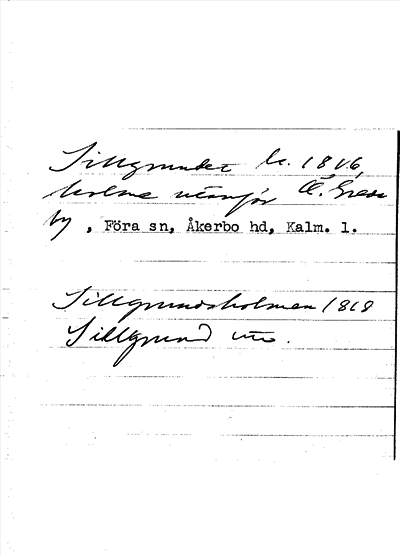 Sillgrundet k. 1816,
holme utanför Ö. Greda
by, Föra sn, Åkerbo hd, Kalm. l.
Sillgrundsholmen 1818
Sillgrund